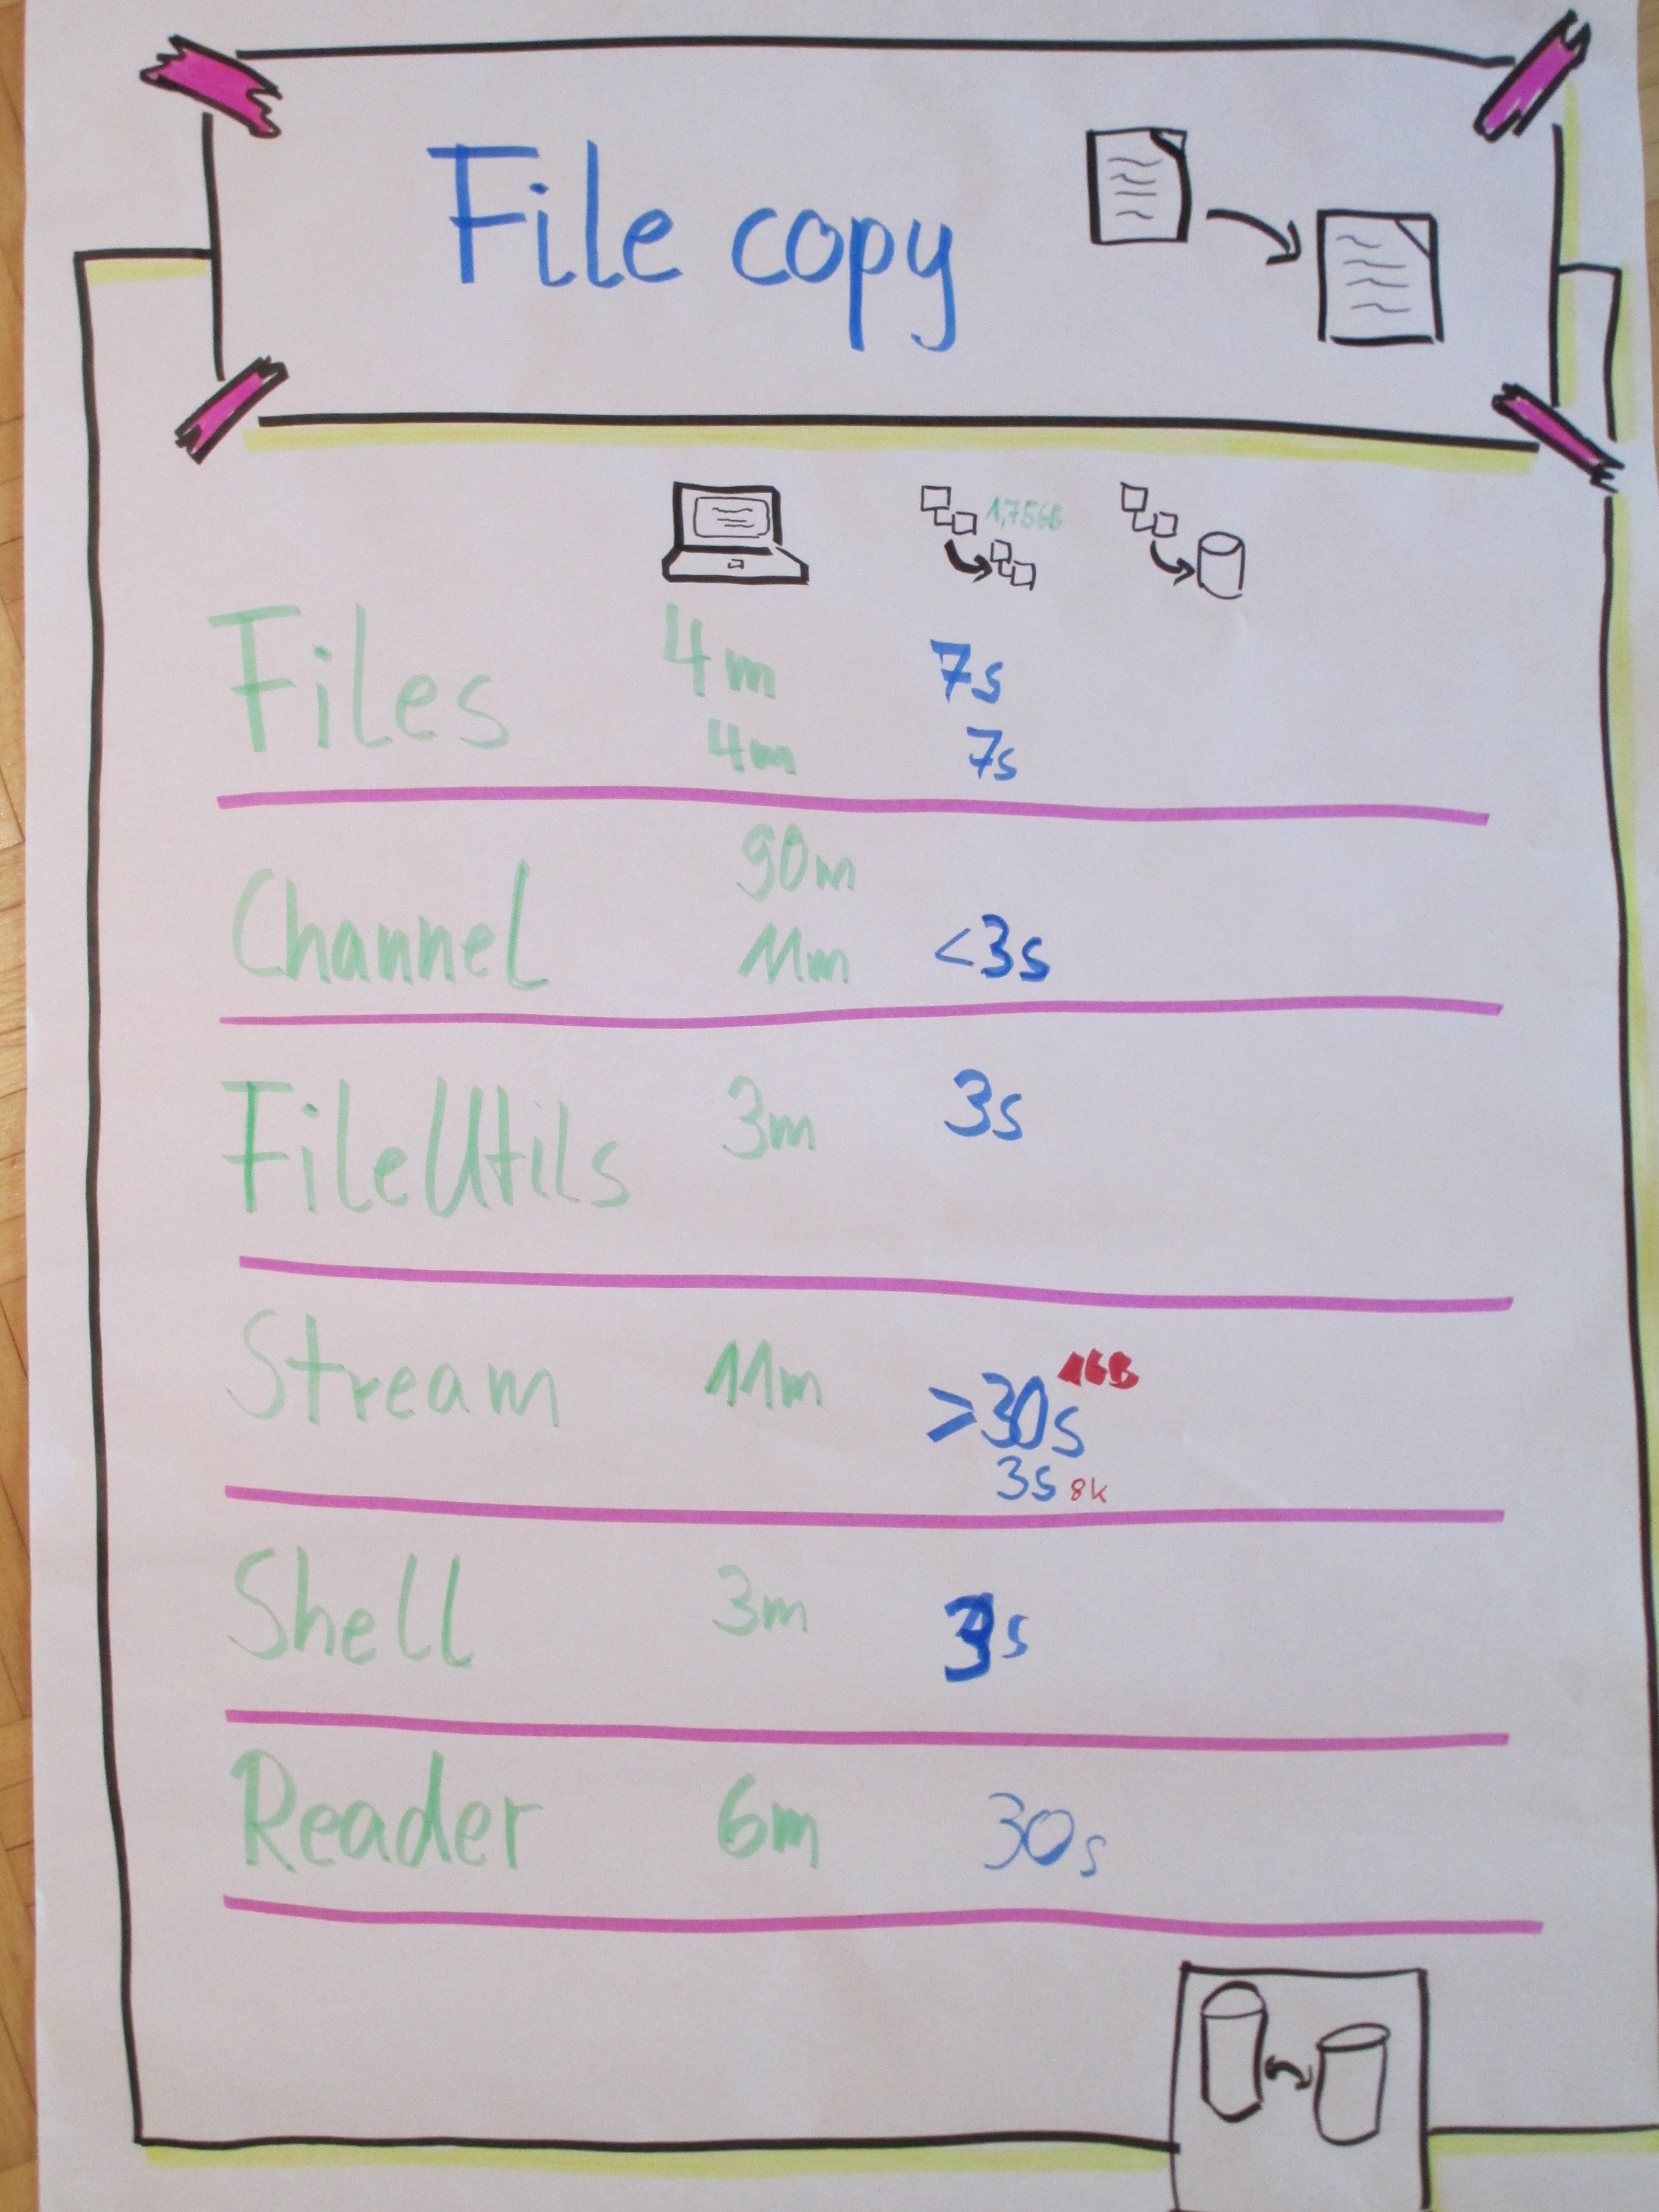 File copy
1,75GB
Files 4m 7s
4m 7s
90m
Channel 11m <3s
FileUtils 3m 3s
Stream 11m >30s 1GB
3s 8k
Shell 3m 3s
Reader 6m 30s